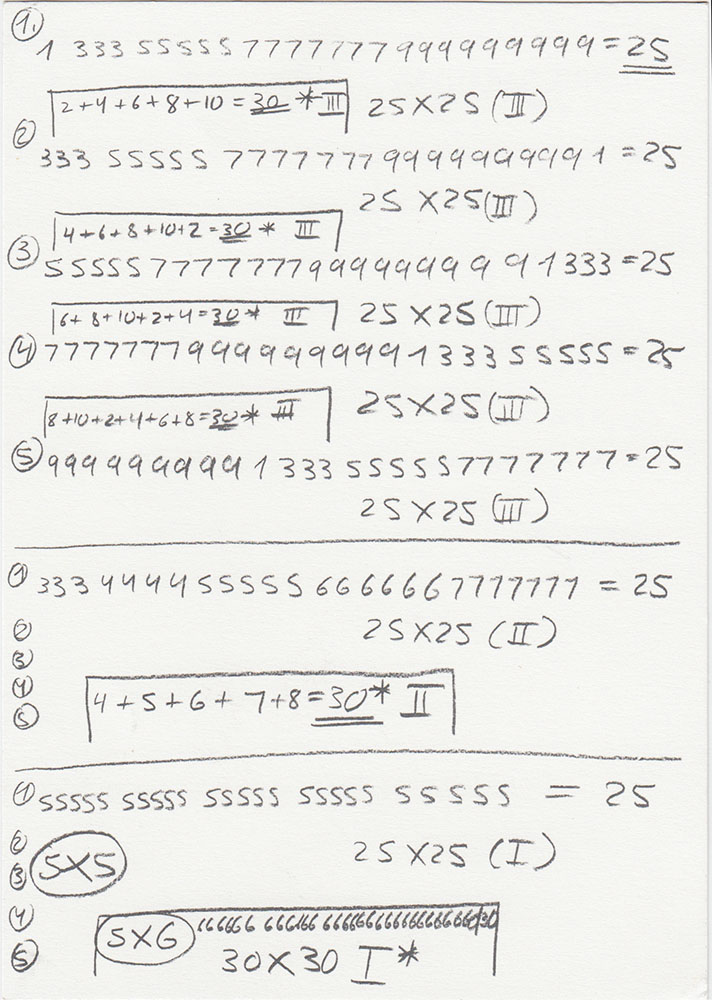 1.
1 333 55555 7777777 999999999 = 25
2+4+6+8+10 = 30 * III 25X25 (III)
2
333 55555 7777777 999999999 1 = 25
25X25 (III)
4+6+8+10+2 = 30 * III
3
55555 7777777 999999999 1 333 = 25
6+8+10+2+4 = 30 * III 25X25 (III)
4 7777777 999999999 1 333 55555 = 25
8+10+2+4+6+8 = 30 * III 25X25 (III)
5 999999999 1 333 55555 7777777 = 25
25X25 (III)
1 333 4444 55555 666666 7777777 = 25
2 25X25 (II)
3
4 4+5+6+7+8 = 30* II
5
1 55555 55555 55555 55555 55555 = 25
2 25X25 (I)
3 5X5
4
5 5X6
30X30 I*